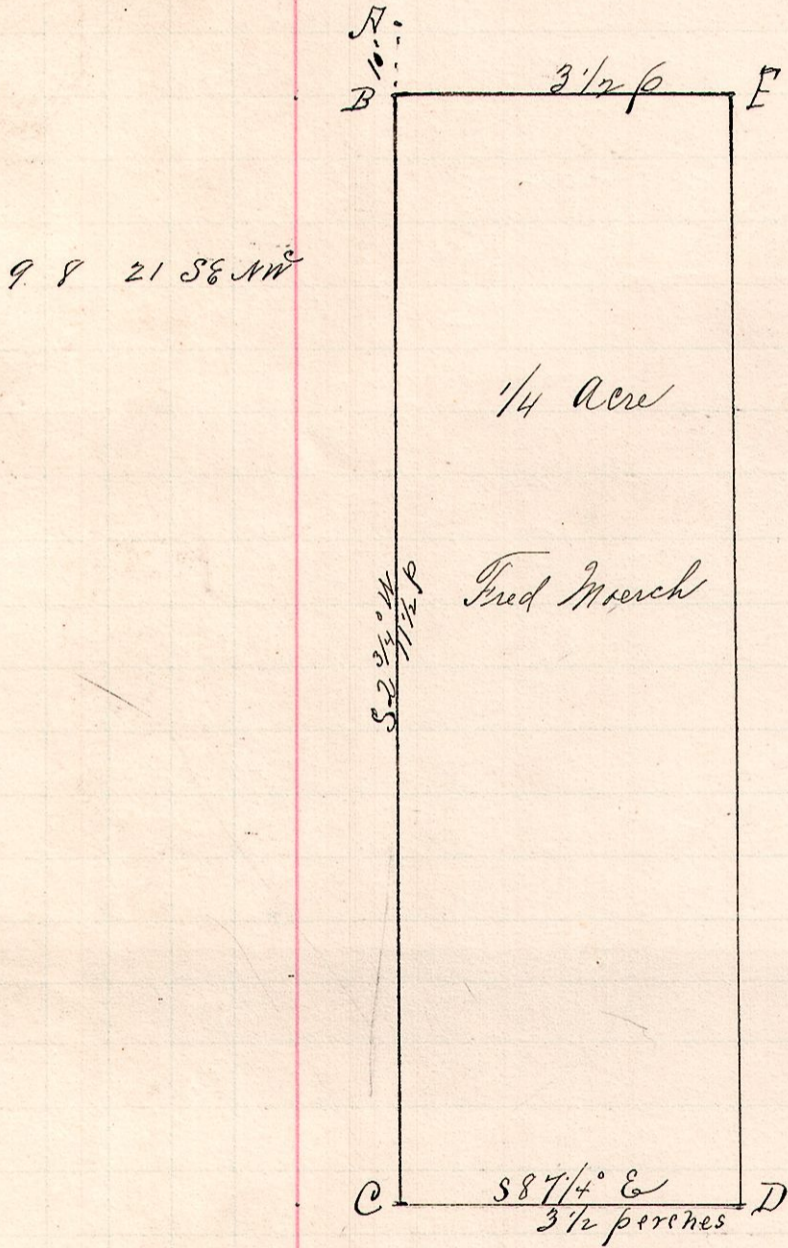 A
10'
B 3 1/2 p E
9 8 21 SE NW
1/4 Acre
Fred Moerch
S 2 3/4° W
11 1/2 p
C S 87 1/4° E D
3 1/2 perches